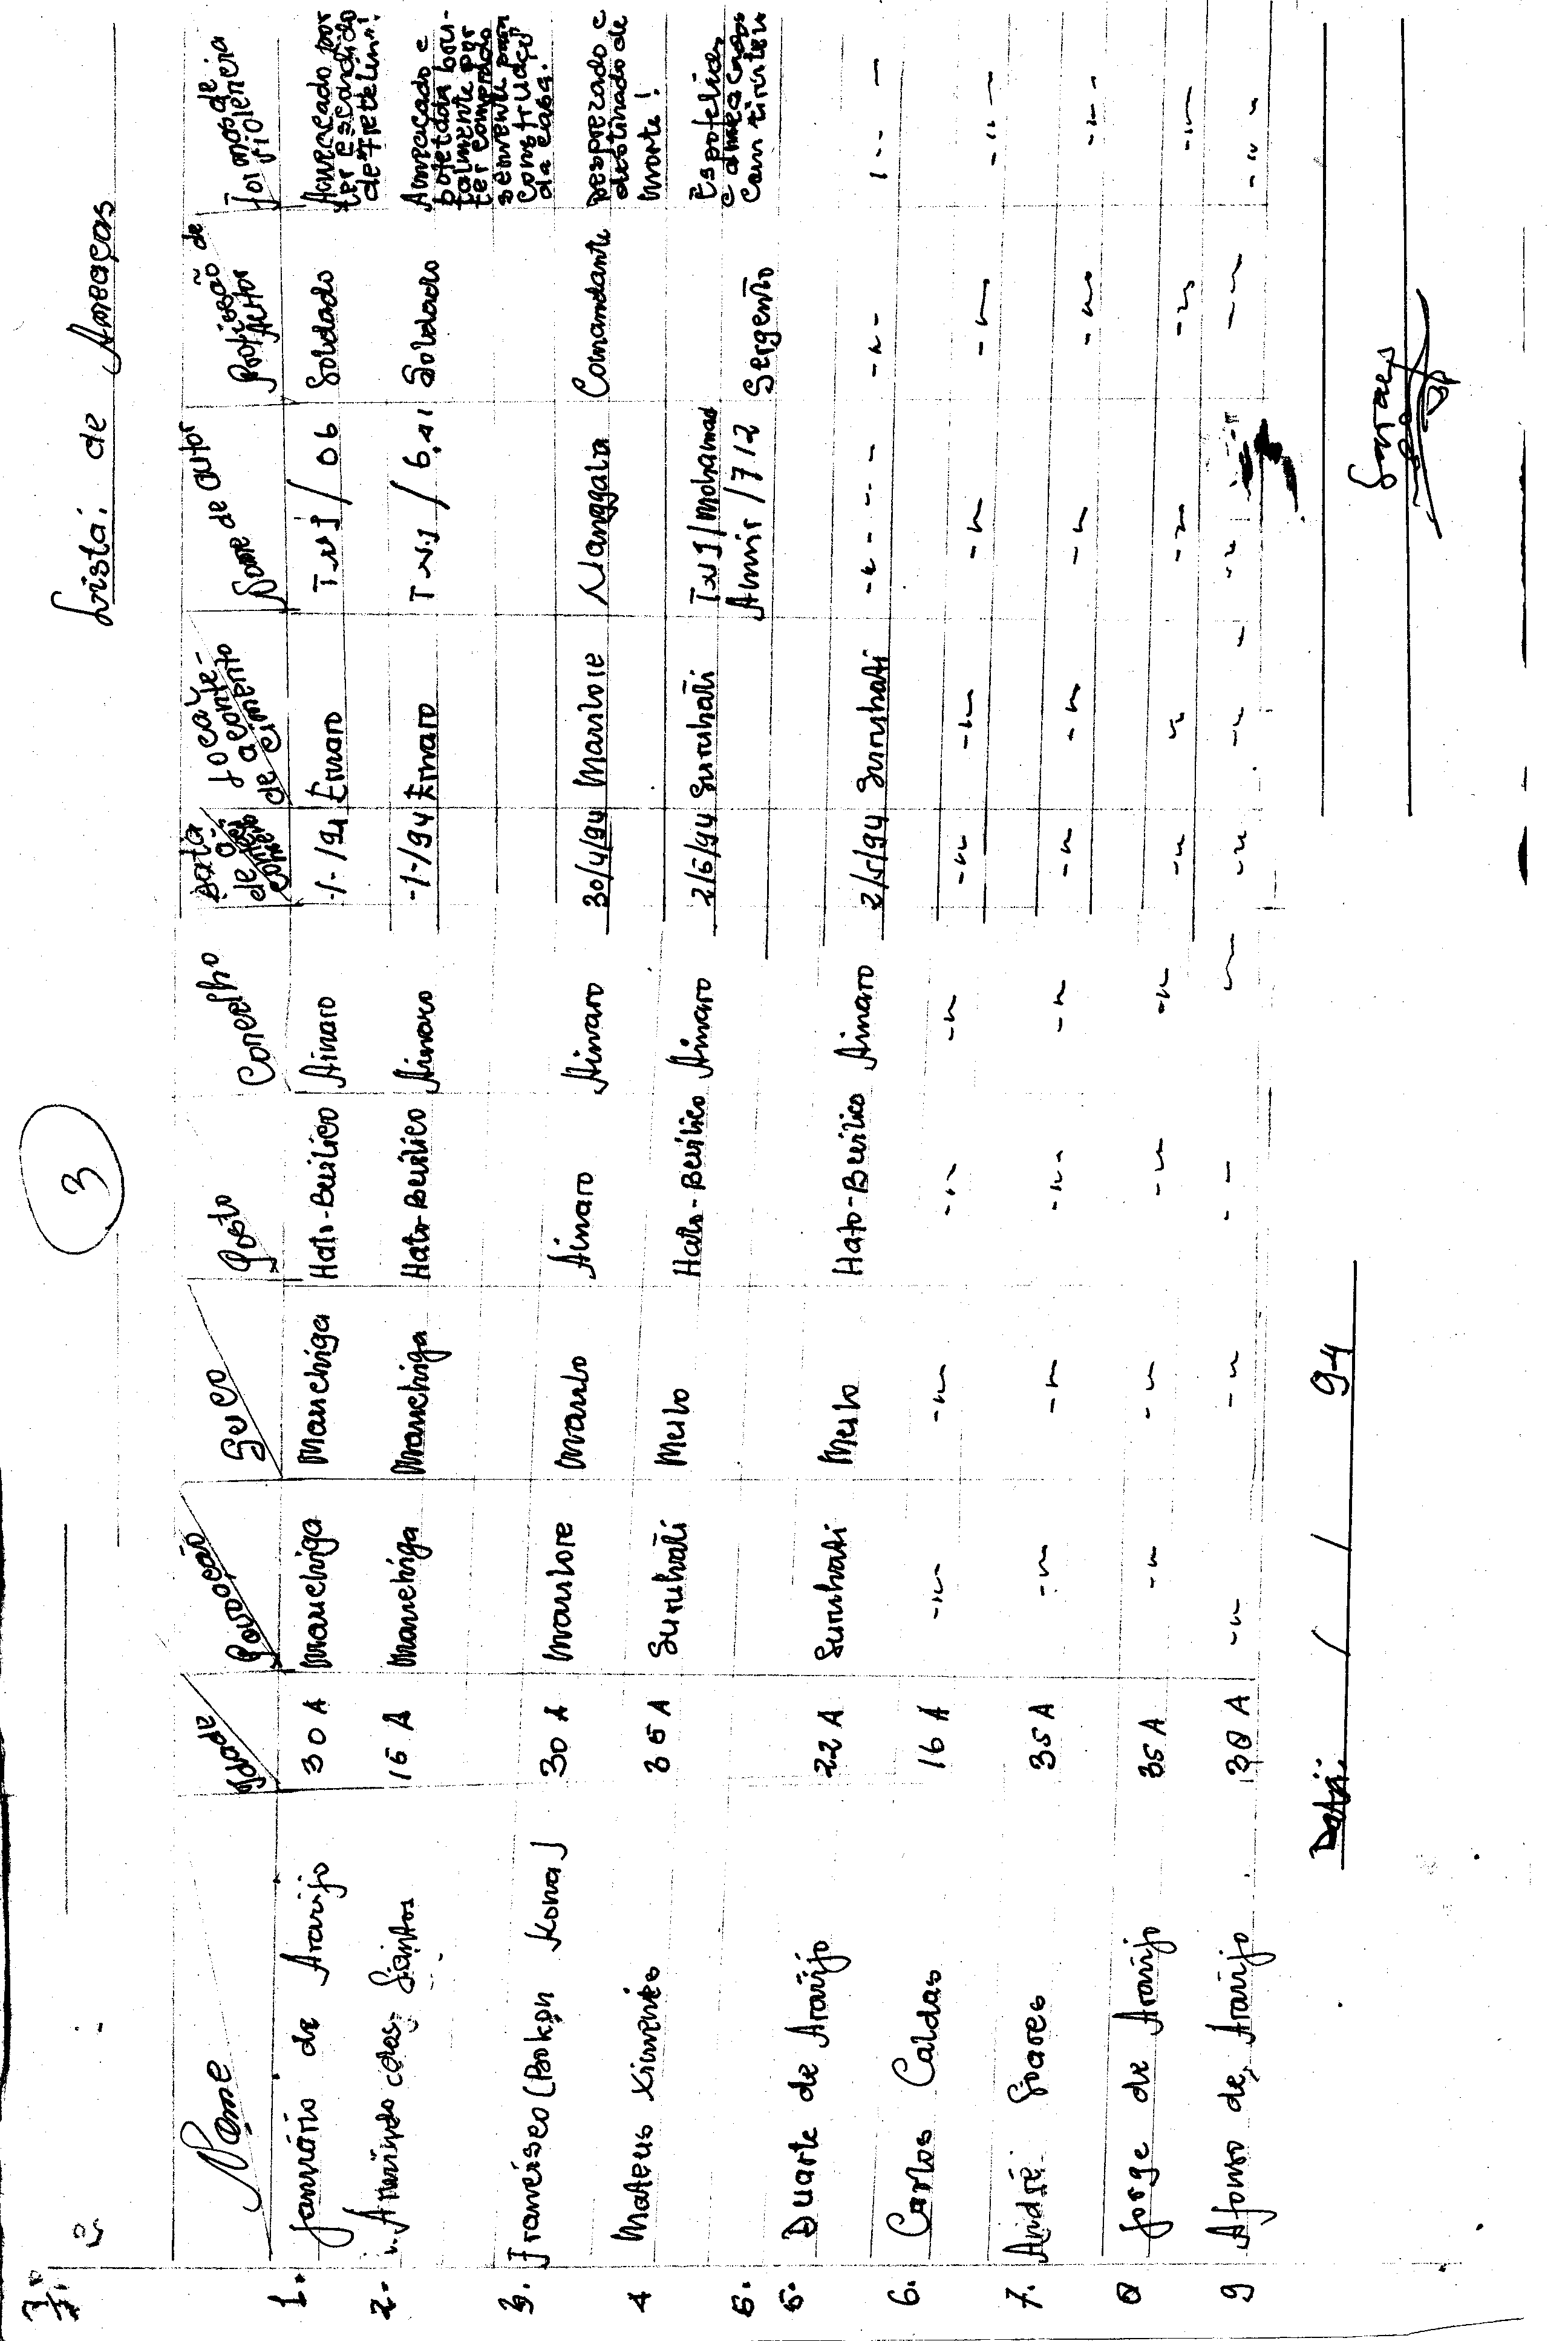 3
Lista de Ameaças
Nome Idade Povoação Suco Posto Concelho Data de acontecimento Local de acontecimento Nome de autor Profissão de Autor Formas de violencia
1. Januário de Araújo 30 A Mauchiga Mauchiga Hato-Builico Ainaro -/-/94 Ainaro T.N.I / 06 Soldado Ameaçado por ter escondido de Fretelins!
2. Armindo dos Santos 16 A Mauchiga Mauchiga Hato-Builico Ainaro -/-/94 Ainaro T.N.I / 641 Soldado Ameaçado e bofetada brutalmente por ter comprado semente para construção da casa.
3. Francisco (Bokon Kona) 30 A Maulore Maulo Ainaro Ainaro 30/4/94 Maulore Nanggala Comandante Desprezado e destinado de morte!
4 Mateus Ximenes 35 A Suruhati Mulo Hato-Builico Ainaro 2/5/94 Suruhati TNI/Mohamad Amir /712 Sergento Espotelida e ameaçados com tiroteiu
5.
5. Duarte de Araújo 22 A Suruhati Mulo Hato-Builico Ainaro 2/5/94 Suruhati -"- - - -"- - " -
6. Carlos Caldas 16 A -"- -"- -"- -"- -"- -"- -"- -"- -"-
7. André Soares 35 A -"- -"- -"- -"- -"- -"- -"- -"- -"-
8 Jorge de Araújo 35 A -"- -"- -"- -"- -"- -"- -"- -"- -"-
9 Afonso de Araújo 38 A -"- -"- -"- -"- -"- -"- -"- -"- -"-
Data: / / 94